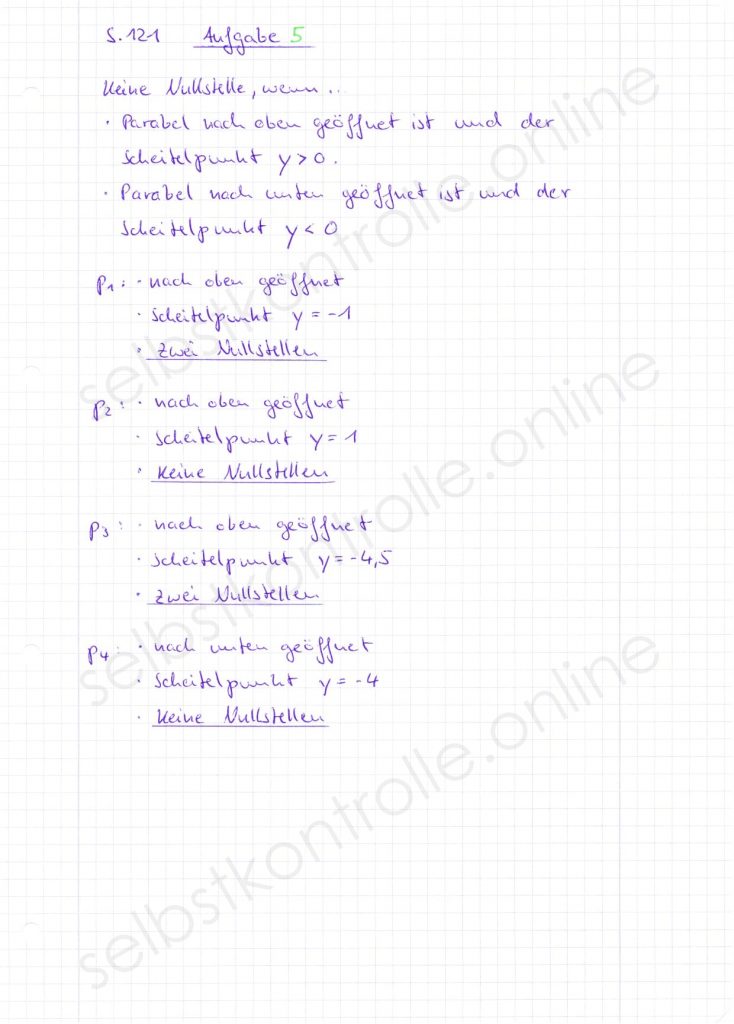 S. 121 Aufgabe 5
Keine Nullstelle, wenn...
· Parabel nach oben geöffnet ist und der
Scheitelpunkt y > 0.
· Parabel nach unten geöffnet ist und der
Scheitelpunkt y < 0
P1: · nach oben geöffnet
· Scheitelpunkt y = -1
· Zwei Nullstellen
P2: · nach oben geöffnet
· Scheitelpunkt y = 1
· Keine Nullstellen
P3: · nach oben geöffnet
· Scheitelpunkt y = -4,5
· Zwei Nullstellen
P4: · nach unten geöffnet
· Scheitelpunkt y = -4
· Keine Nullstellen
selbstkontrolle.online
selbstkontrolle.online
selbstkontrolle.online